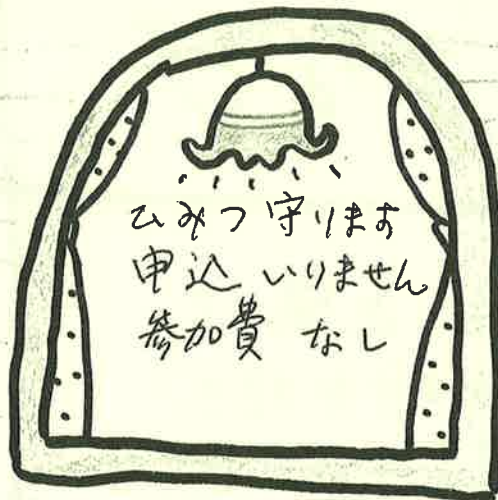 ひみつ守ります
申込 いりません
参加費 なし